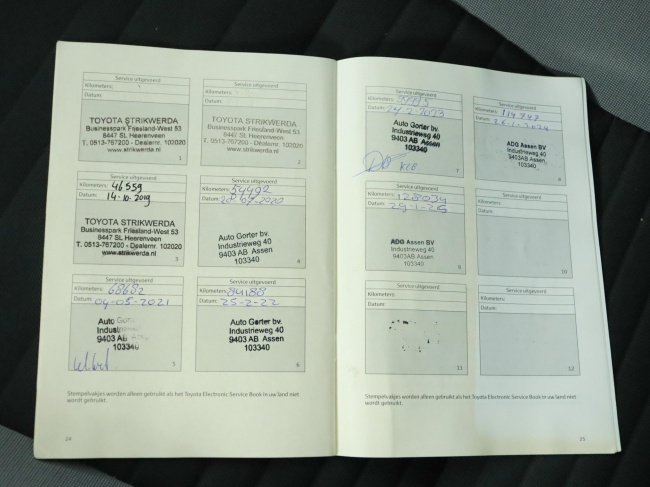 Service uitgevoerd
Kilometers:
Datum:
TOYOTA STRIKWERDA
Businesspark Friesland-West 53
8447 SL Heerenveen
T. 0513-767200 - Dealernr. 102020
www.strikwerda.nl
1
Service uitgevoerd
Kilometers:
Datum:
TOYOTA STRIKWERDA
Businesspark Friesland-West 53
8447 SL Heerenveen
T. 0513-767200 - Dealernr. 102020
www.strikwerda.nl
2
Service uitgevoerd
Kilometers: 46559
Datum: 14-10-2019
TOYOTA STRIKWERDA
Businesspark Friesland-West 53
8447 SL Heerenveen
T. 0513-767200 - Dealernr. 102020
www.strikwerda.nl
3
Service uitgevoerd
Kilometers:
Datum: 2020
Auto Gorter bv.
Industrieweg 40
9403 AB Assen
103340
4
Service uitgevoerd
Kilometers: 68682
Datum: 04-05-2021
Auto
Indus
9403 AB
103340
5
Service uitgevoerd
Kilometers: 84188
Datum: 25-2-22
Auto Gorter bv.
Industrieweg 40
9403 AB Assen
103340
6
Stempelvakjes worden alleen gebruikt als het Toyota Electronic Service Book in uw land niet
wordt gebruikt.
24
Service uitgevoerd
Kilometers:
Datum: 24-2-2023
Auto Gorter bv.
Industrieweg 40
9403 AB Assen
103340
7
Service uitgevoerd
Kilometers:
Datum:
ADG Assen BV
Industrieweg 40
9403AB Assen
103340
8
Service uitgevoerd
Kilometers: 128034
Datum: 29-1-25
ADG Assen BV
Industrieweg 40
9403AB Assen
103340
9
Service uitgevoerd
Kilometers:
Datum:
10
Service uitgevoerd
Kilometers:
Datum:
11
Service uitgevoerd
Kilometers:
Datum:
12
Stempelvakjes worden alleen gebruikt als het Toyota Electronic Service Book in uw land niet
wordt gebruikt.
25